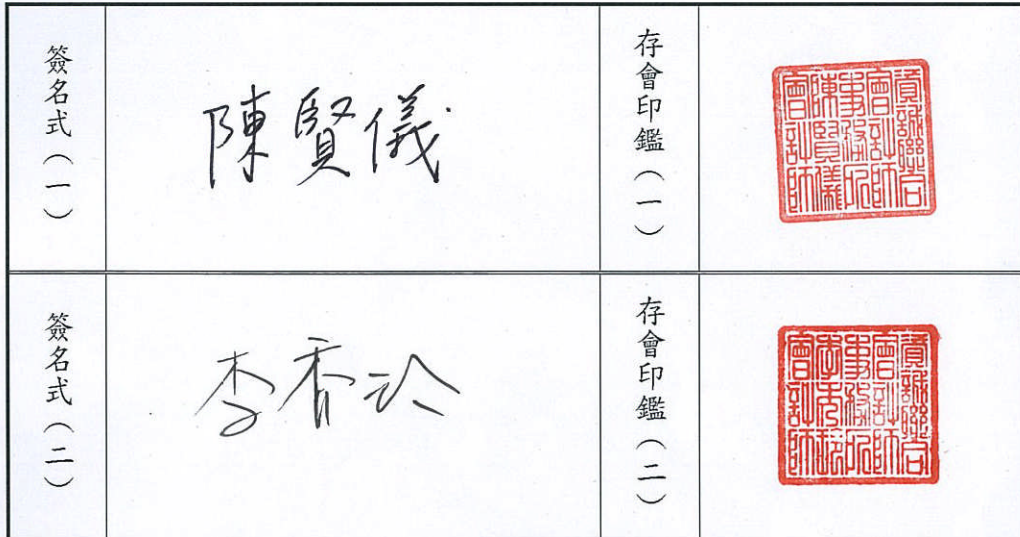 簽名式（一）
陳賢儀
存會印鑑（一）
資誠聯合
會計師
事務所
陳賢儀
會計師
簽名式（二）
存會印鑑（二）
資誠聯合
會計師
事務所
會計師